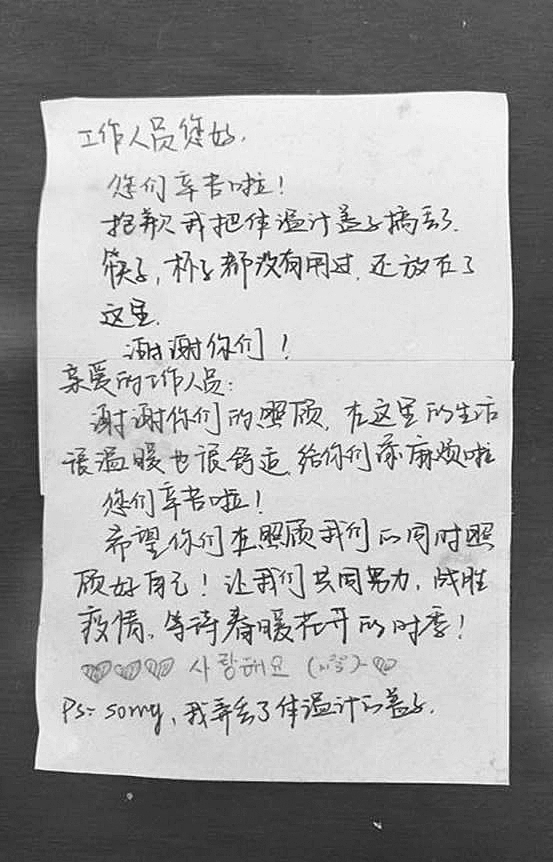 工作人员您好.
您们辛苦啦!
抱歉我把体温计盖子搞丢了.
筷子,杯子都没有用过,还放在了
这里.
谢谢你们!
亲爱的工作人员:
谢谢你们的照顾,在这里的生活
很温暖也很舒适.给你们添麻烦啦
您们辛苦啦!
希望你们在照顾我们的同时照
顾好自己!让我们共同努力,战胜
疫情,等待春暖花开的时季!
사랑해요
Ps: sorry,我弄丢了体温计的盖子.